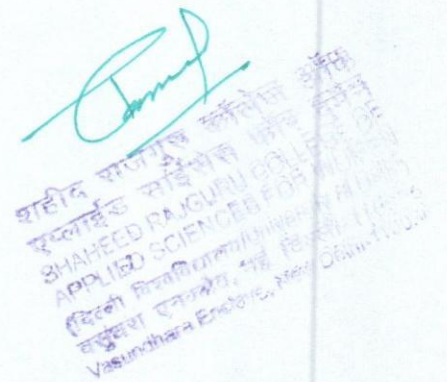 शहीद राजगुरू कॉलेज ऑफ
एप्लाईड साईंसेस फॉर वूमेन
SHAHEED RAJGURU COLLEGE OF
APPLIED SCIENCES FOR WOMEN
(दिल्ली विश्वविद्यालय/University of Delhi)
वसुंधरा एनक्लेव, नई दिल्ली
Vasundhara Enclave, New Delhi